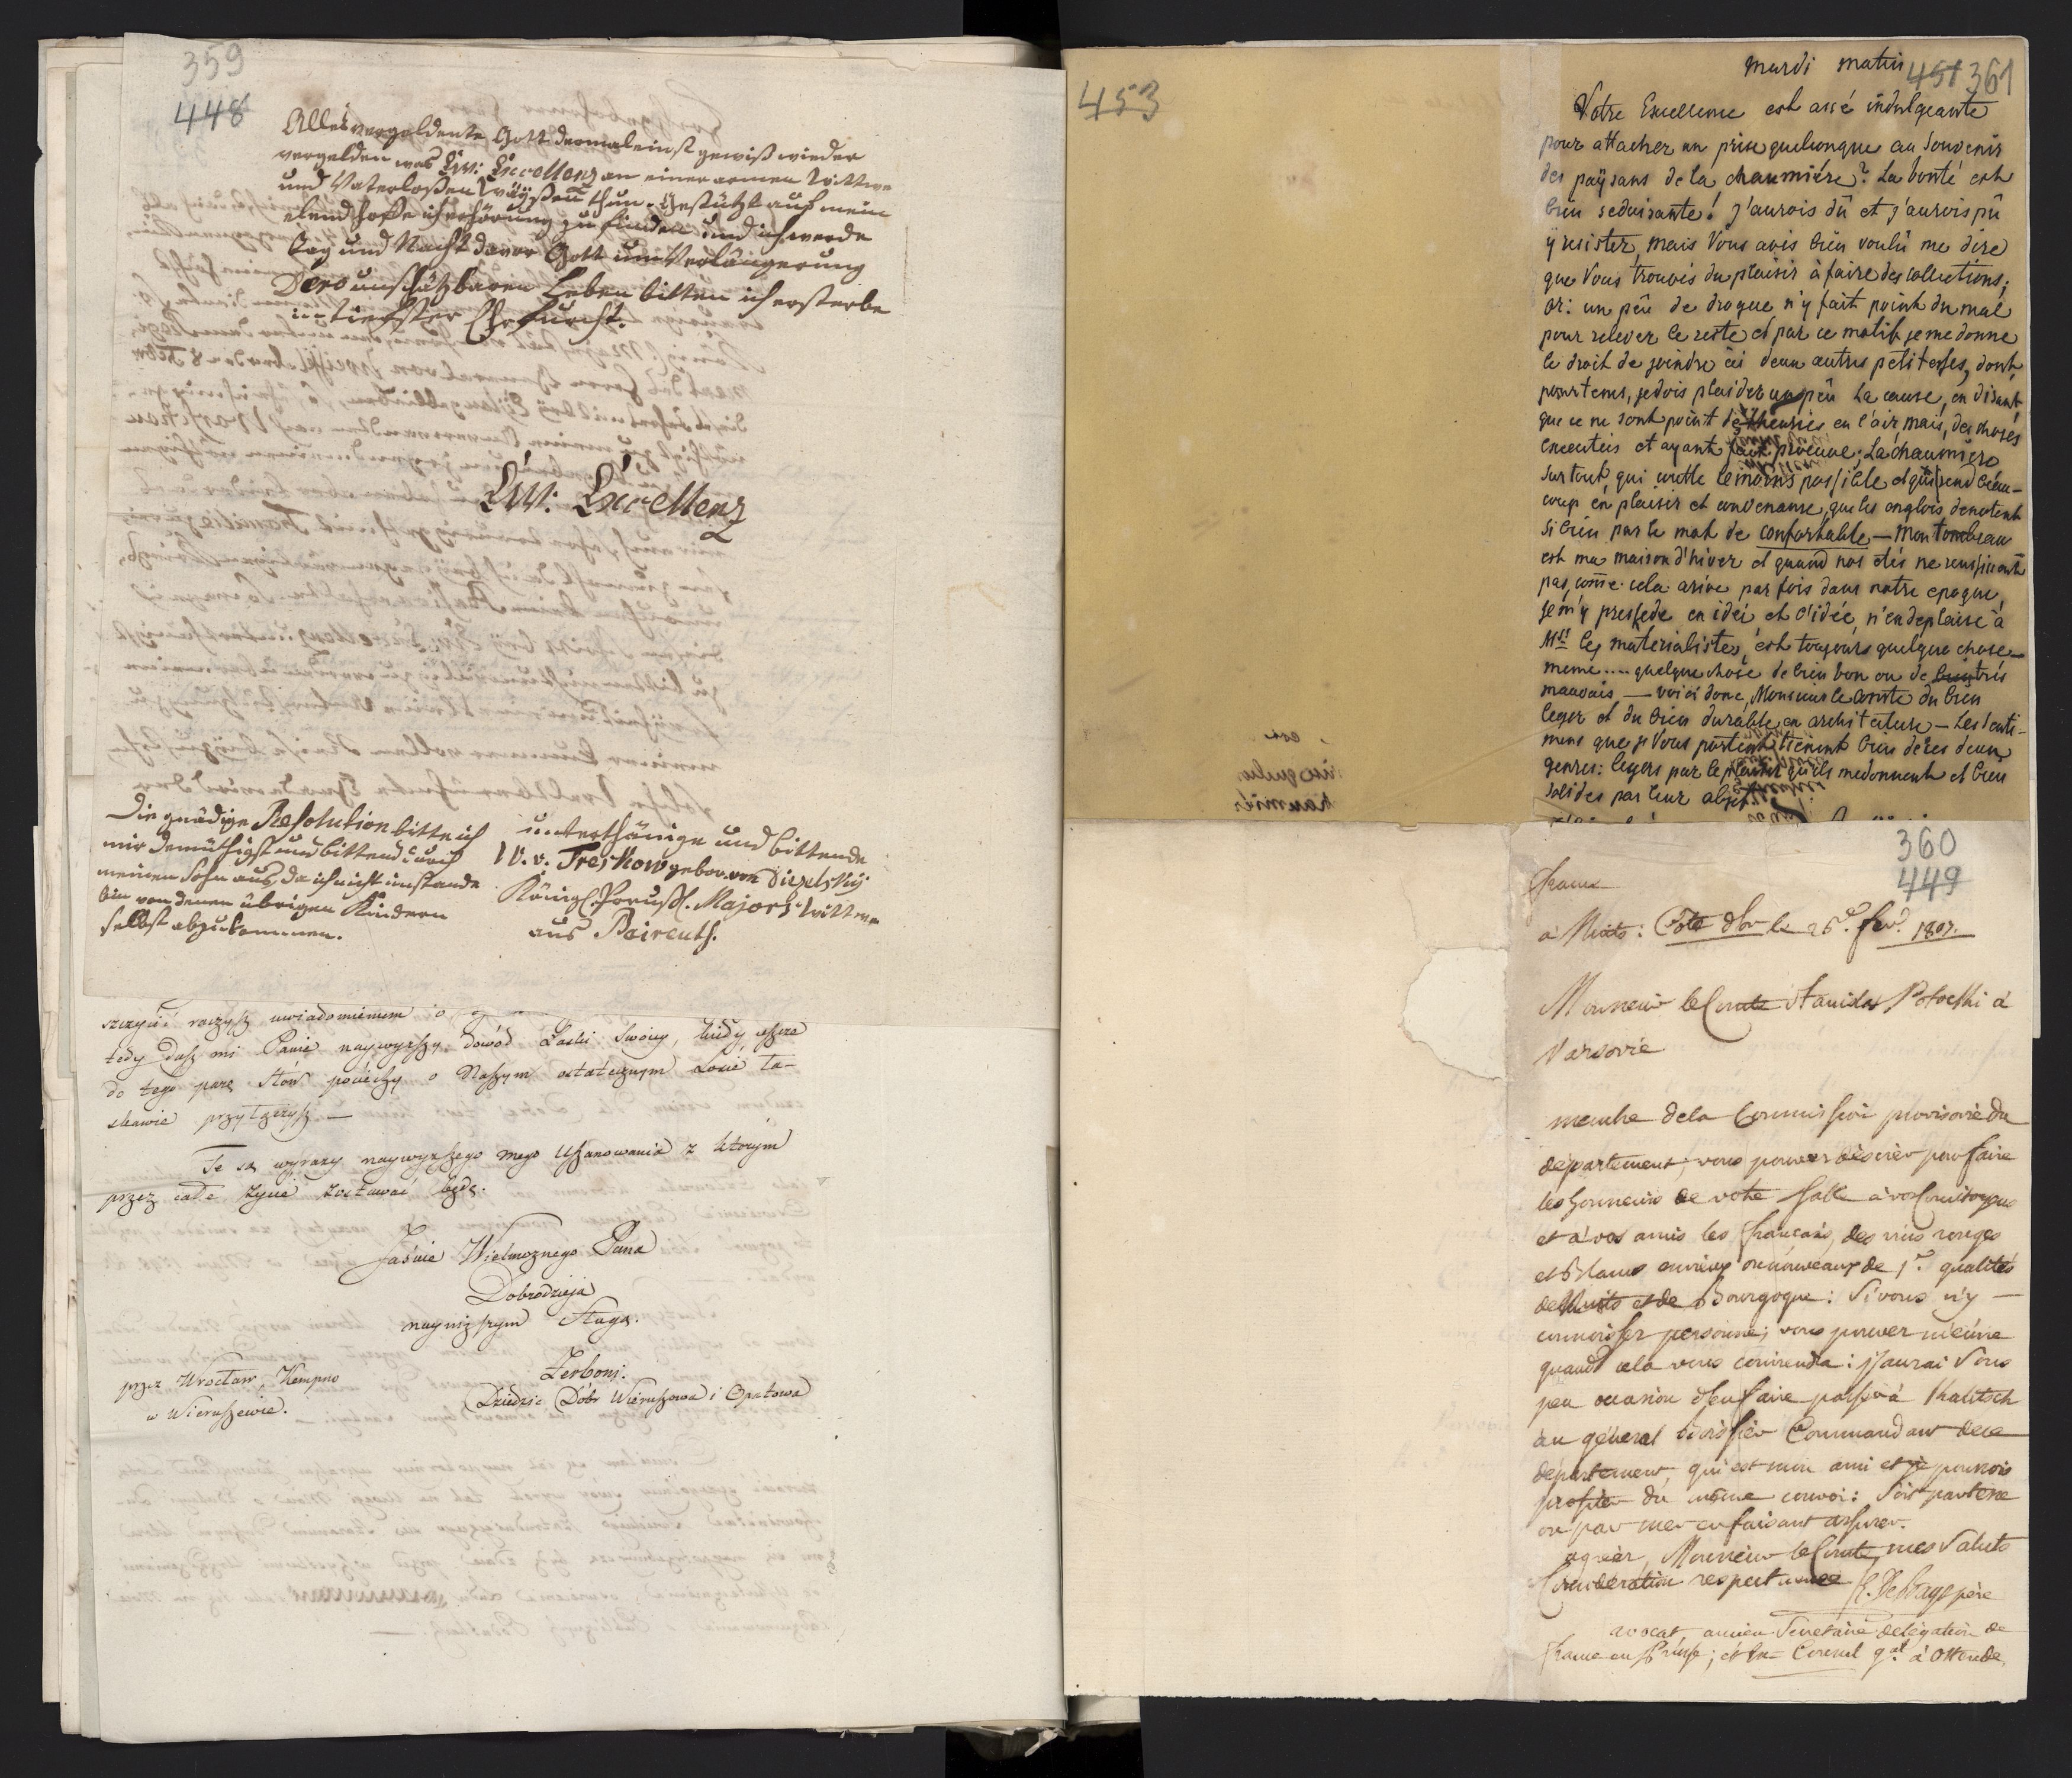 359
448
Alles vergeldente Gott dermaleinst gewiß wieder
vergelden was Ew: Excellenz an einer armen Wittwe
und Vaterloßen Wäyßen thun. Gestützt auf mein
elend hoffe ich erhörung zu finden und ich werde
Tag und Nacht davor Gott um Verlängerung
Dero unschätzbaren Leben bitten ich ersterbe
in tiefster Ehrfurcht.
Ew: Excellenz
Die gnädige Resolution bitte ich
mir demüthigst und bittend durch
meinen Sohn aus, da ich nicht imstande
bin von denen übrigen Kindern
selbst abzukommen.
unterthänige und bittende
W. v. Treskow gebor. von Diezelsky
Königl. Preuß. Majors Wittwe
aus Baireuth.
szczycić raczysz uwiadomieniem o
tedy dasz mi Panie naywyższy dowód Łaski Swoiey, kiedy ieszcze
do tego parę słów pociechy o Naszym ostatecznym Losie ła-
skawie przyłączysz —
Te są wyrazy naywyższego mego Uszanowania z którym
przez całe życie zostawać będę.
Jaśnie Wielmożnego Pana
Dobrodzieja
nayniższym Sługą.
Zerboni.
Dziedzic Dóbr Wieruszowa i Opatowa
przez Wrocław, Kempno
w Wieruszewie.
453
mardi matin
451 361
Votre Excellence est assé indulgeante
pour attacher un prix quelconque au souvenir
des paÿsans de la chaumiére? La bonté est
bien seduisante! j'aurois dû et j'aurois pû
ÿ resister, mais Vous avés bien voulû me dire
que Vous trouvés du plaisir à faire des collections;
or: un pêu de drogue n'y fait point du mal
pour relever le reste et par ce motif je me donne
le droit de joindre ici deux autres petitesses, dont,
pourtems, je dois plaider un pêu la cause, en disant
que ce ne sont point de theories en l'air, mais, des choses
executées et ayant fait preuve; La chaumiere
surtout, qui coutte le moins possible et qui rend beau-
coup en plaisir et convenance, que les anglois denotent
si bien par le mot de confortable — Mon tombeau
est ma maison d'hiver et quand nos etés ne reussissent
pas, come cela arive par fois dans notre epoque,
je m'y possede en idée et l'idée, n'en deplaise à
Mrs les materialistes, est toujours quelque chose —
meme .... quelque chose de bien bon ou de bien tres
mauvais — voici donc, Monsieur le comte du bien
leger et du bien durable en architecture — Les senti-
mens que je Vous porte tiennent bien de ces deux
genres: legers par le plaisir qu'ils me donnent et bien
solides par leur objet
360
449
france
à Nuits: Côte d'or le 26e. fevr. 1807.
Monsieur le Comte Stanislas Potocki à
Varsovie
membre de la Commission provisoire du
departement, vous pouvez désirer pour faire
les honneurs de votre table à vos Concitoyens
et à vos amis les français, des vins rouges
et blancs envieux ou nouveaux de 1re. qualités
de Nuits et de Bourgogne: Si vous n'y —
connoissez personne; vous pouvez m'écrire
quand cela vous conviendra: j'aurai sous
peu occasion d'en faire passer à Khalitsch
au général Commandant de ce
département, qui est mon ami et je pourrois
profiter du même convoi: soit par terre
ou par mer en faisant assurer.
agréer, Monsieur le Comte, mes saluts
Considération respectueuse
père
avocat, ancien Secrétaire de légation de
france en Prusse; et Ex-Consul gal. à Ostende